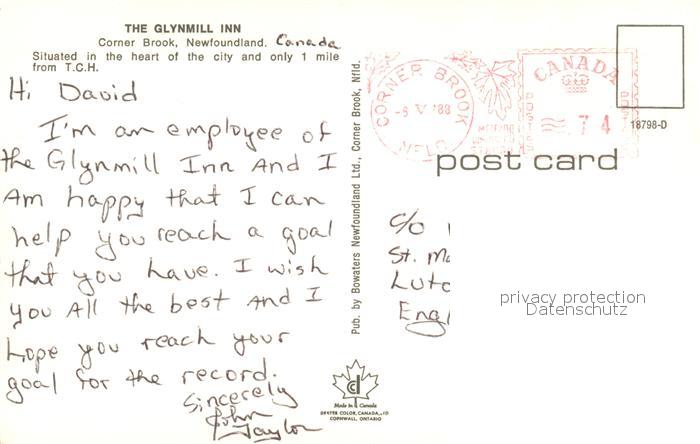 THE GLYNMILL INN
Corner Brook, Newfoundland. Canada
Situated in the heart of the city and only 1 mile
from T.C.H.
Hi David
I'm an employee of
the Glynmill Inn And I
Am happy that I can
help you reach a goal
that you have. I wish
you All the best And I
hope you reach your
goal for the record.
Sincerely
John
Taylor
Pub. by Bowaters Newfoundland Ltd., Corner Brook, Nfld.
CORNER BROOK
-6 V '88
NFLD
CANADA
.74
18798-D
post card
c/o
St.
Engl
privacy protection
Datenschutz
Made in Canada
DEXTER COLOR, CANADA, LTD
CORNWALL, ONTARIO